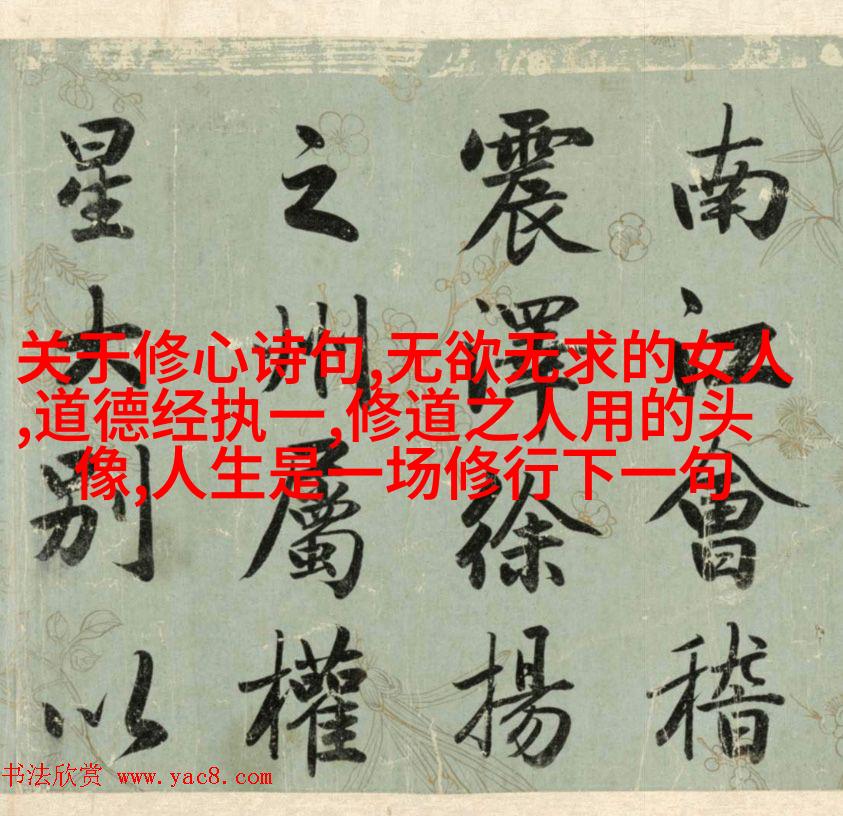 南江會稽
震澤徐揚
之州屬權
星大別以
关于修心诗句,无欲无求的女人
,道德经执一,修道之人用的头
像,人生是一场修行下一句
书法欣赏 www.yac8.com